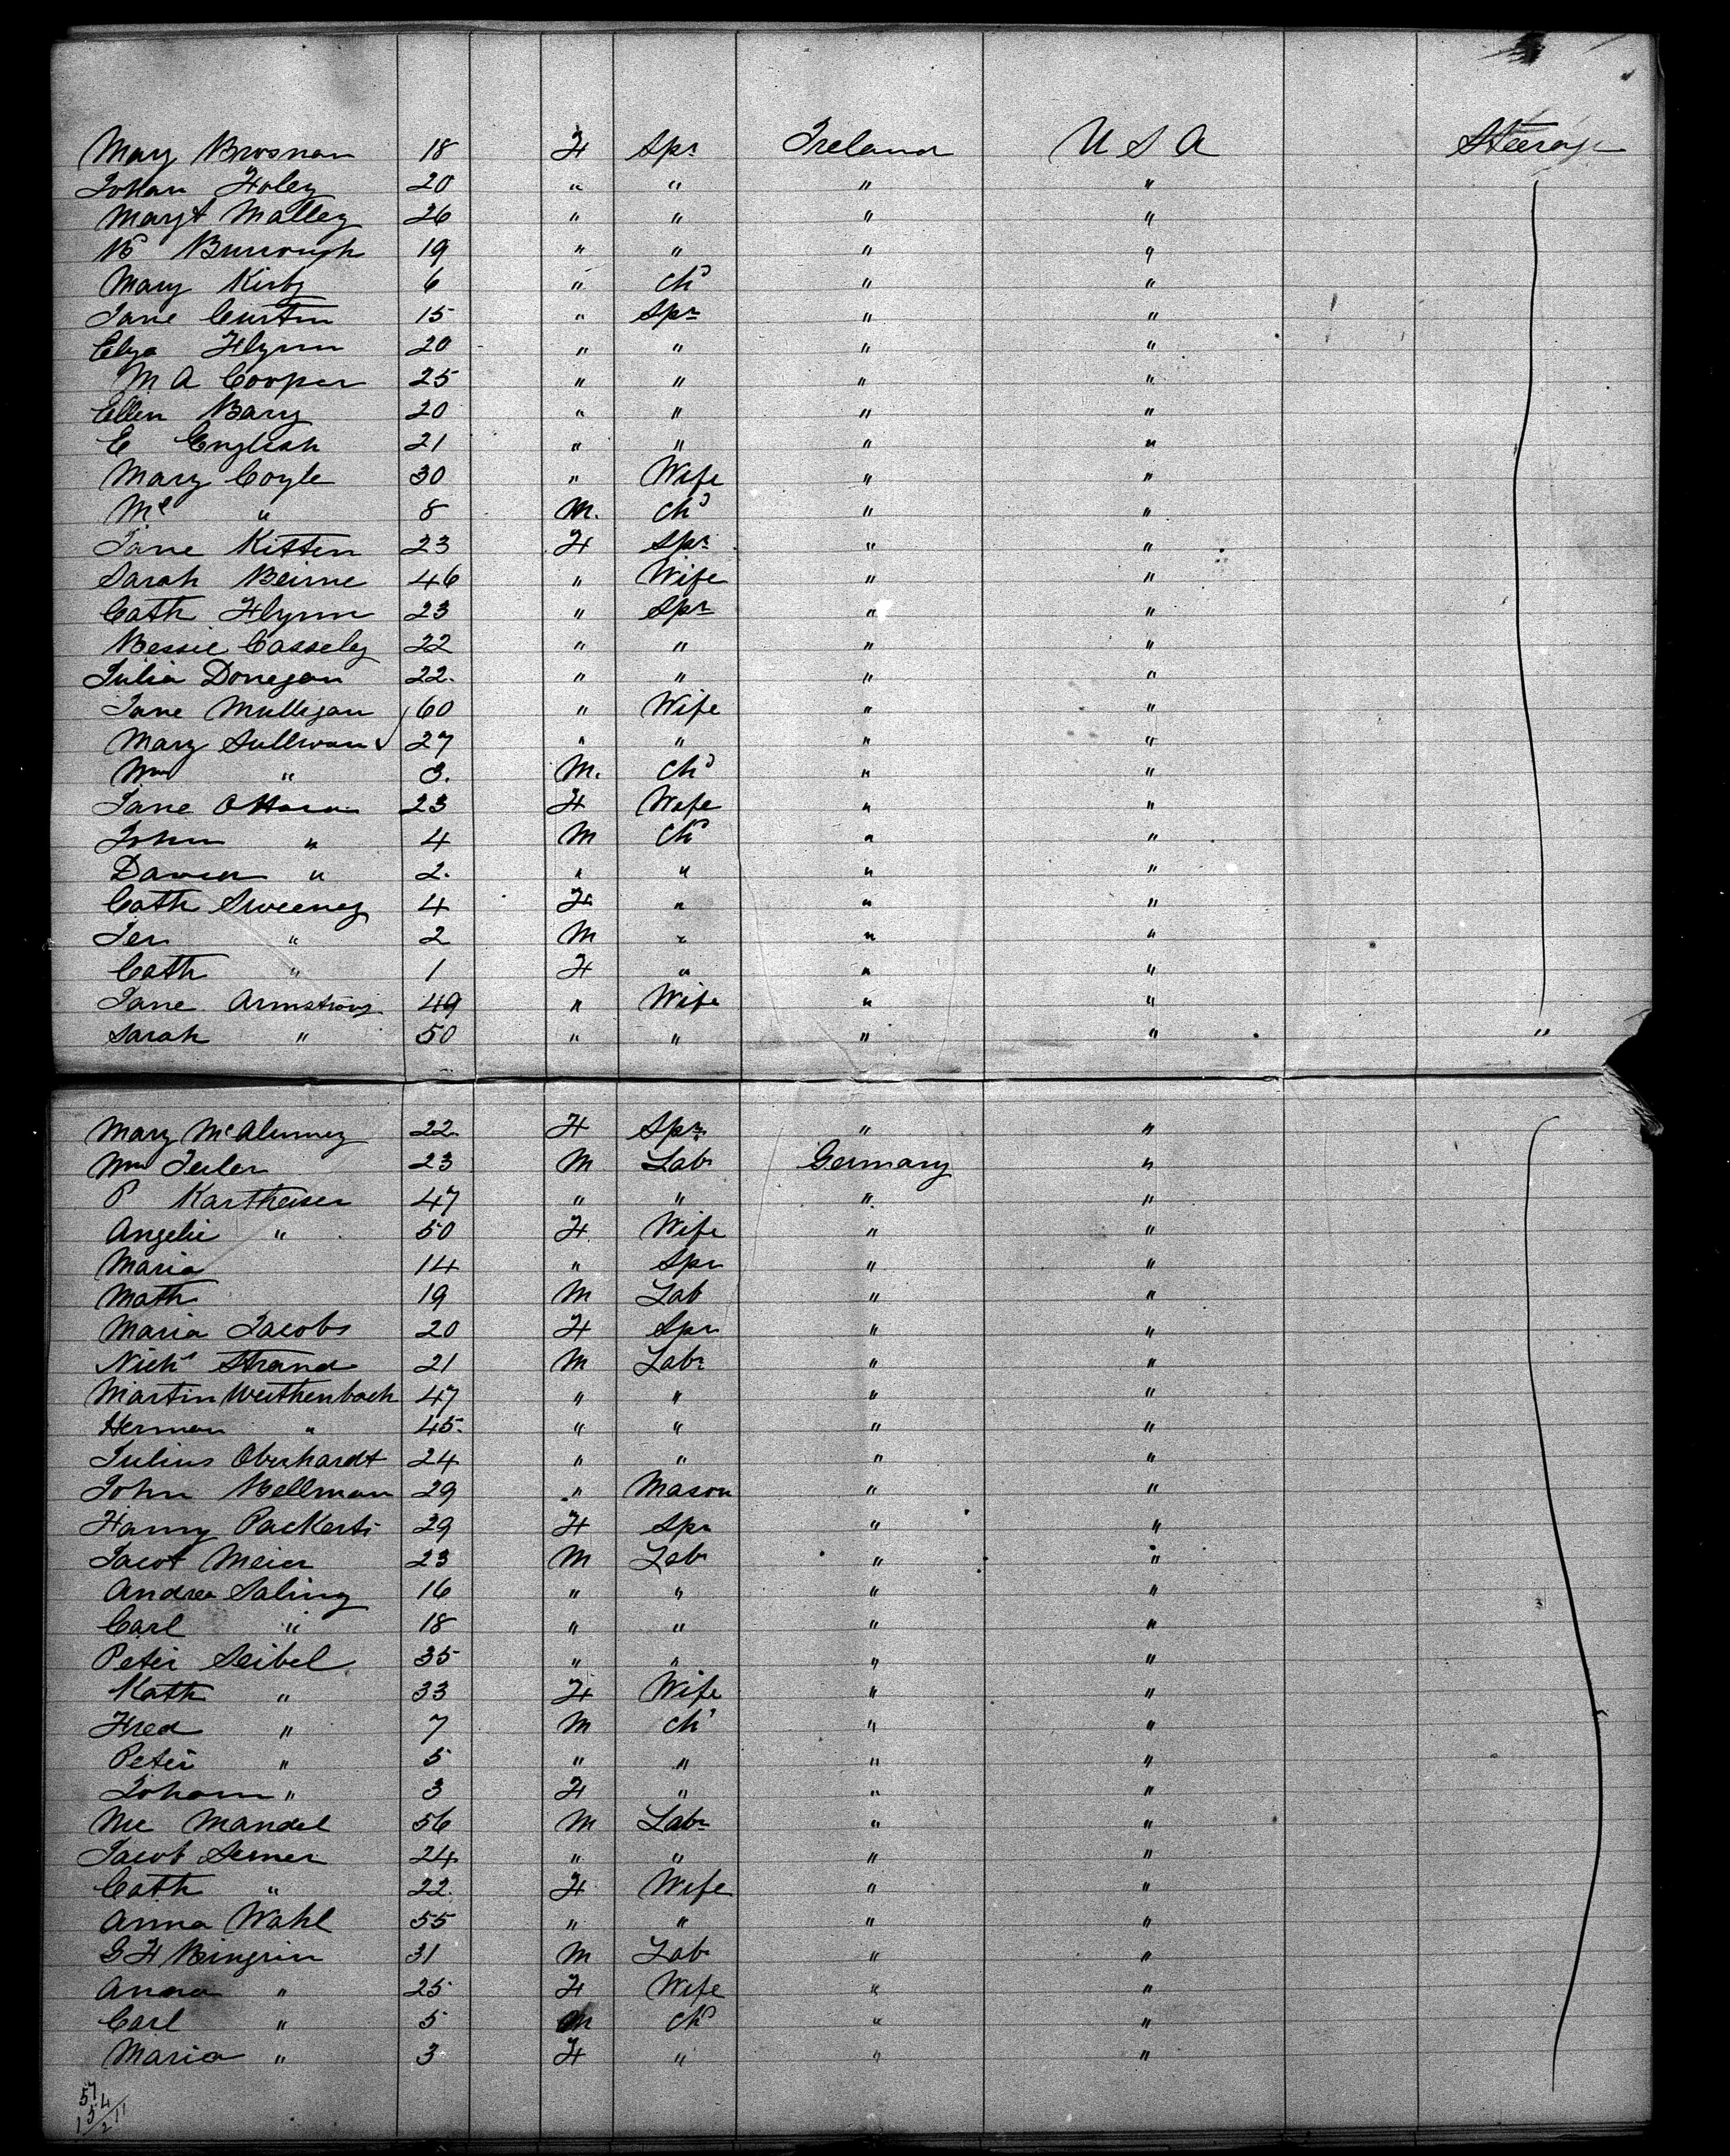 Mary Brosnan 18 F Spr Ireland U S A Steerage
Johan Foley 20 " " " "
Margt Malley 26 " " " "
Burrough 19 " " " "
Mary Kirby 6 " Chd " "
Jane Curtin 15 " Spr " "
Elza Flynn 20 " " " "
M A Cooper 25 " " " "
Ellen Barry 20 " " " "
E English 21 " " " "
Mary Coyle 30 " Wife " "
Ml " 8 M. Chd " "
Jane Kitten 23 F Spr " "
Sarah Beirne 46 " Wife " "
Cath Flynn 23 " Spr " "
Bessie Cassely 22 " " " "
Julia Donegan 22. " " " "
Jane Mulligan 60 " Wife " "
Mary Sullivan 27 " " " "
Wm " 3. M. Chd " "
Jane OHara 23 F Wife " "
John " 4 M Chd " "
" 2. " " " "
Cath Sweeney 4 F " " "
Jer " 2 M " " "
Cath " 1 F " " "
Jane Armstrong 49 " Wife " "
Sarah " 50 " " " " "
Mary McAlunney 22 F Spr " "
Wm 23 M Labr Germany "
P Kartheiser 47 " " " "
Angelie " 50 F Wife " "
Maria 14 " Spr " "
Math 19 M Lab " "
Maria Jacobs 20 F Spr " "
Nichs Strand 21 M Labr " "
Martin Weithenbach 47 " " " "
Herman " 45. " " " "
Julius Oberhardt 24 " " " "
John Bellman 29 " Mason " "
Fanny Packerts 29 F Spr " "
Jacob Meier 23 M Labr " "
Andrea Saling 16 " " " "
Carl " 18 " " " "
Peter Seibel 35 " " " "
Kath " 33 F Wife " "
Fred " 7 M Chd " "
Peter " 5 " " " "
Johann " 3 F " " "
Nic Mandel 56 M Labr " "
Jacob 24 " " " "
Cath " 22 F Wife " "
Anna Wahl 55 " " " "
G F Bingrin 31 M Lab " "
Anna " 25 F Wife " "
Carl " 5 M Chd " "
Maria " 3 F " " "
57
54